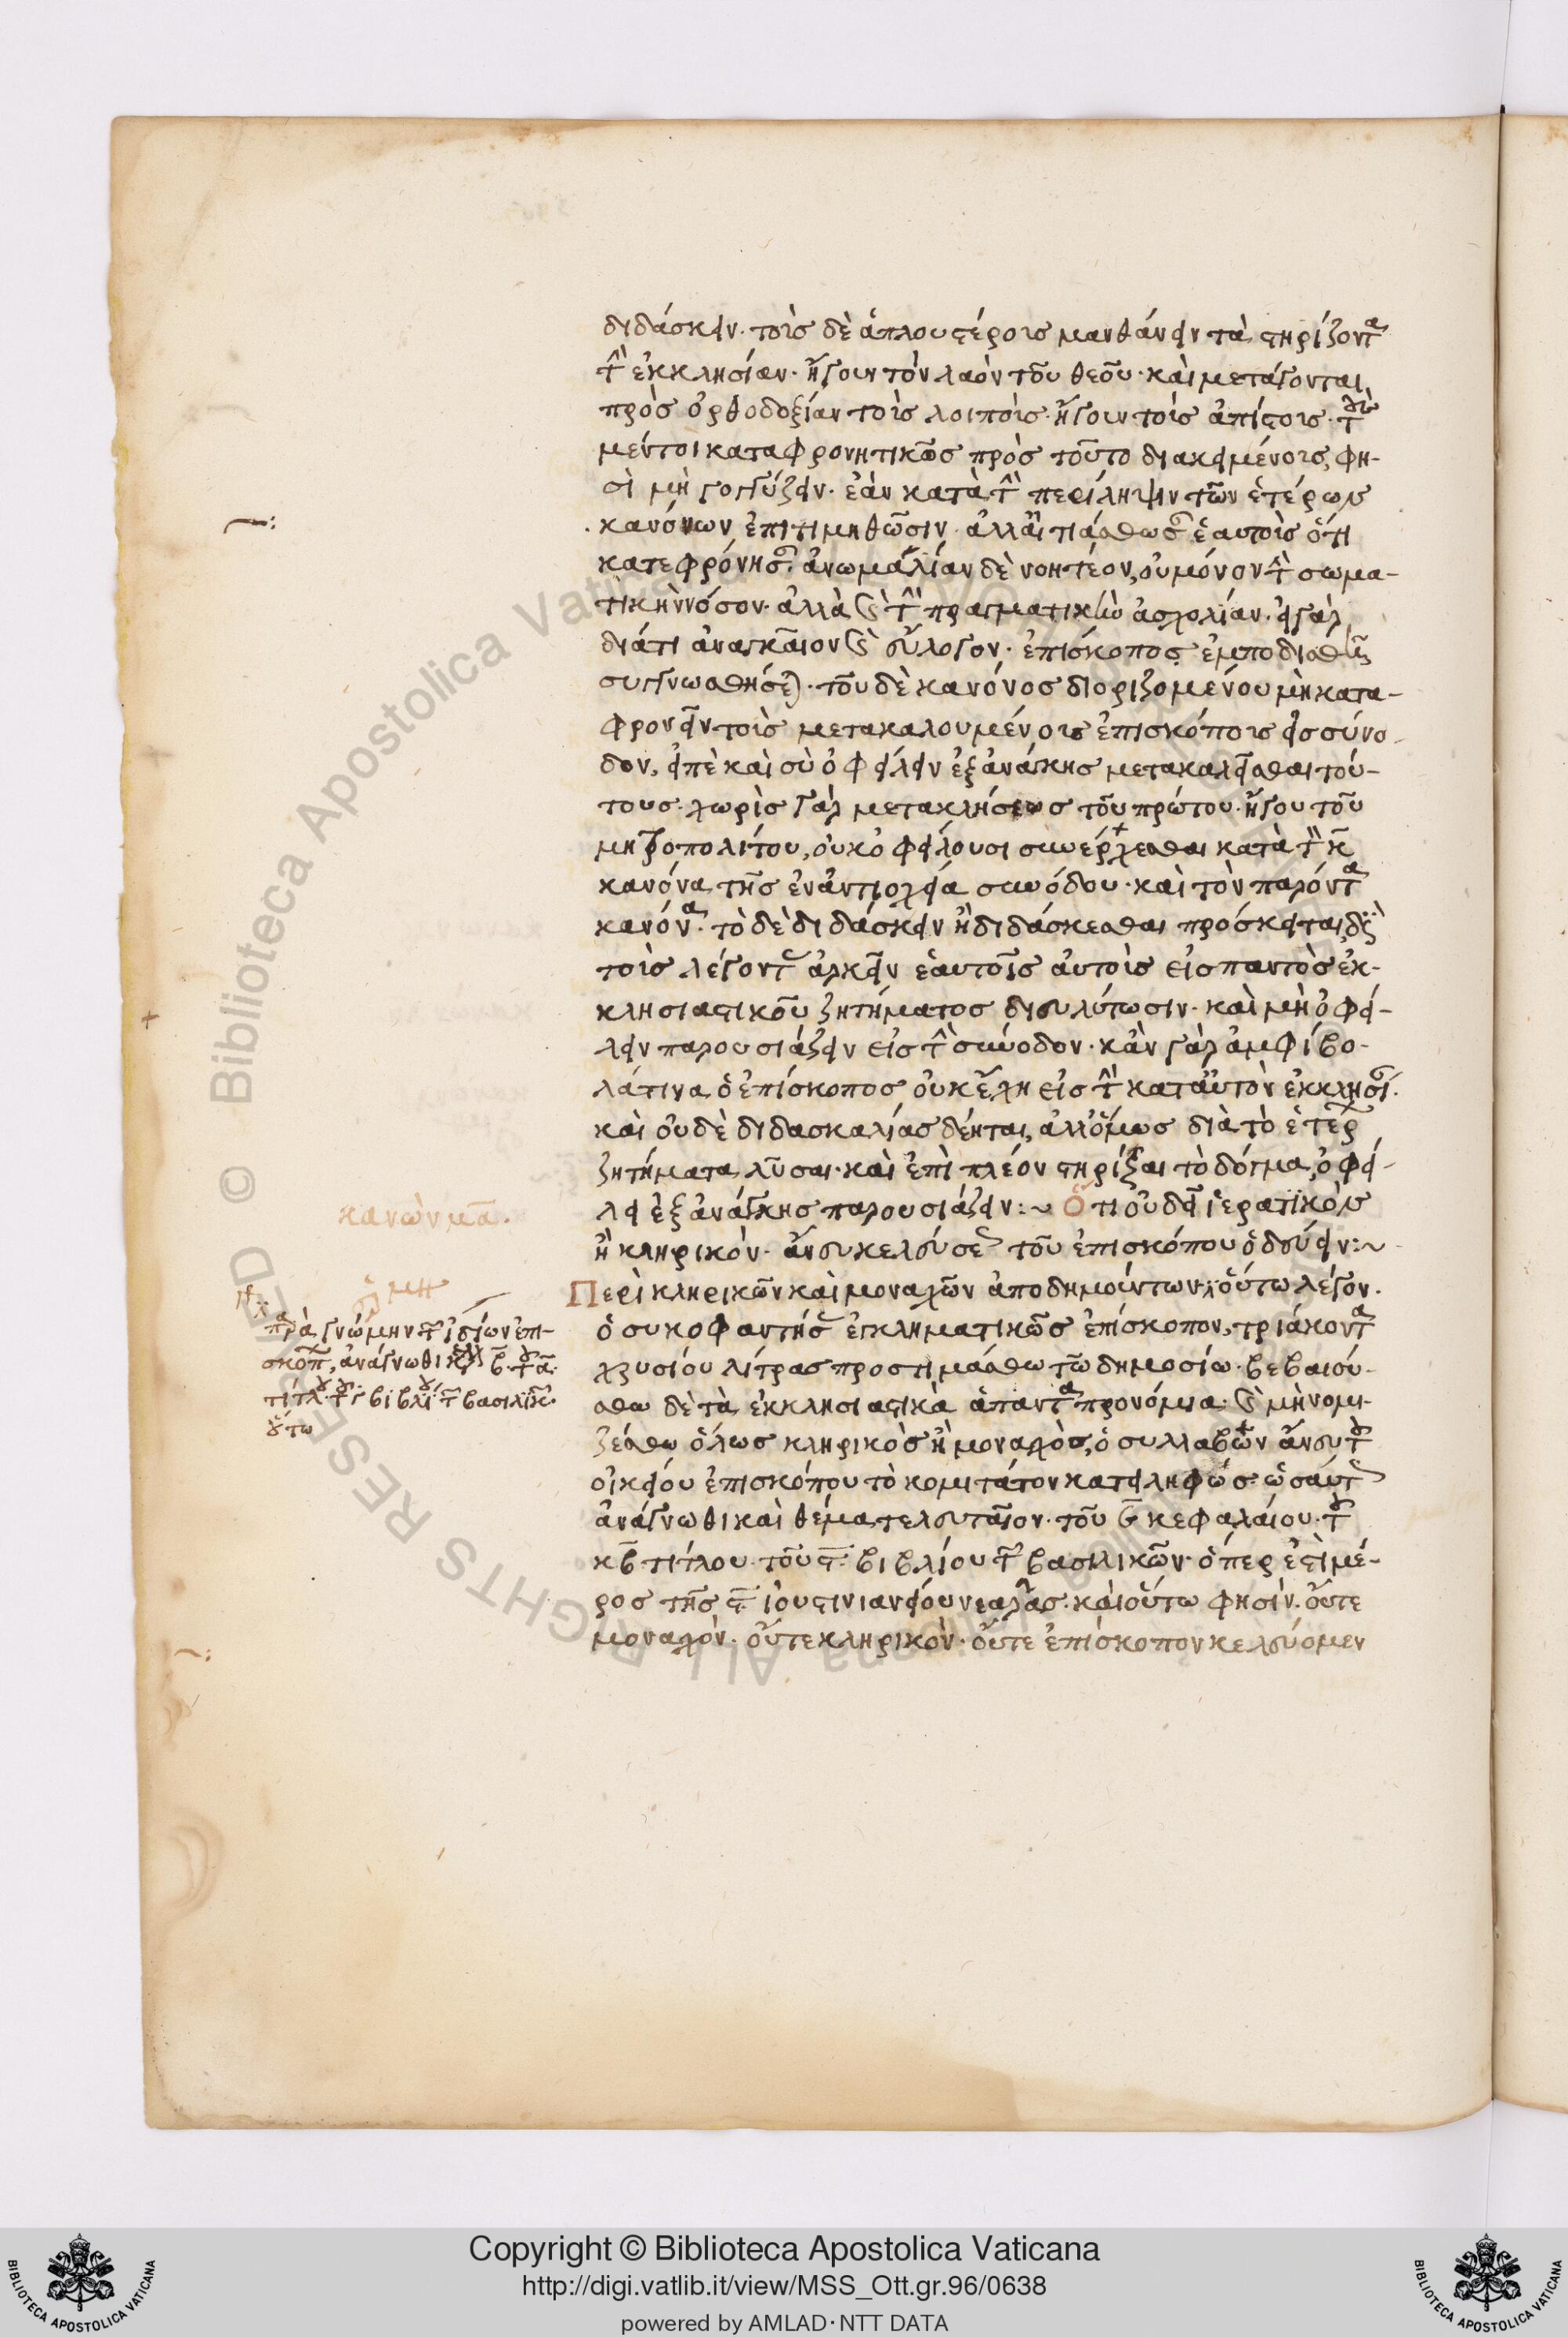 διδάσκειν· τοῖς δὲ ἁπλουστέροις μανθάνειν τὰ στηρίζοντα
τὴν ἐκκλησίαν· ἤγουν τὸν λαὸν τοῦ θεοῦ· καὶ μετάγονται
πρὸς ὀρθοδοξίαν τοῖς λοιποῖς· ἤγουν τοῖς ἀπίστοις· τοῖς
μέντοι καταφρονητικῶς πρὸς τοῦτο διακειμένοις, φη-
σὶ μὴ γογγύζειν· ἐὰν κατὰ τὴν περίληψιν τῶν ἑτέρων
κανόνων ἐπιτιμηθῶσιν· ἀλλ' αἰτιάσθωσαν ἑαυτοῖς ὅτι
κατεφρόνησαν· ἀνωμαλίαν δὲ νοητέον, οὐ μόνον τὴν σωμα-
τικὴν νόσον· ἀλλὰ καὶ τὴν πραγματικὴν ἀσχολίαν· εἰ γὰρ
διά τι ἀναγκαῖον καὶ εὔλογον· ἐπίσκοπος ἐμποδισθεὶς
συγγνωσθήσεται· τοῦ δὲ κανόνος διοριζομένου μὴ κατα-
φρονεῖν τοῖς μετακαλουμένοις ἐπισκόποις εἰς σύνο-
δον, εἰπὲ καὶ σὺ ὀφείλειν ἐξ ἀνάγκης μετακαλεῖσθαι τού-
τους· χωρὶς γὰρ μετακλήσεως τοῦ πρώτου· ἤγου τοῦ
μητροπολίτου, οὐκ ὀφείλουσι συνέρχεσθαι κατὰ τὸν κ
κανόνα τῆς ἐν ἀντιοχεία συνόδου· καὶ τὸν παρόντα
κανόνα· τὸ δὲ διδάσκειν ἢ διδάσκεσθαι πρόσκειται διὰ
τοῖς λέγοντας ἀρκεῖν ἑαυτοῖς αὐτοῖς εἰς παντὸς ἐκ-
κλησιαστικοῦ ζητήματος διευλύτωσιν· καὶ μὴ ὀφεί-
λειν παρουσιάζειν εἰς τὴν σύνοδον· κἂν γὰρ ἀμφίβο-
λά τινα ὁ ἐπίσκοπος οὐκ ἔχη εἰς τὴν κατ' αὐτὸν ἐκκλησίαν·
καὶ οὐδὲ διδασκαλίας δέηται, ἀλλ' ὅμως διὰ τὸ ἑτέρων
ζητήματα λῦσαι· καὶ ἐπὶ πλέον στηρίξαι τὸ δόγμα, ὀφεί-
λει ἐξ ἀνάγκης παρουσιάζειν:~ Ὅτι οὐ δεῖ ἱερατικὸν
ἢ κληρικὸν· ἄνευ κελεύσεως τοῦ ἐπισκόπου ὁδεύειν:~
κανὼν μα.
Περὶ κληρικῶν καὶ μοναχῶν ἀποδημούντων οὕτω λέγον·
παρὰ γνώμην τῶν ἰδίων ἐπι-
σκόπων, ἀνάγνωθι κεφάλαιον β τοῦ α
τίτλου τοῦ γ βιβλίου τῶν βασιλικῶν·
οὕτω
ὁ συκοφαντήσας ἐγκληματικῶς ἐπίσκοπον, τριάκοντα
χρυσίου λίτρας προστιμάσθω τῶ δημοσίω· βεβαιού-
σθω δὲ τὰ ἐκκλησιαστικὰ ἅπαντα προνόμια· καὶ μὴ νομι-
ζέσθω ὅλως κληρικὸς ἢ μοναχὸς, ὁ συλλαβὼν ἄνευ τοῦ
οἰκείου ἐπισκόπου τὸ κομιτάτον κατειληφώς· ὡσαύτως
ἀνάγνωθι καὶ θέμα τελευταῖον· τοῦ γ κεφαλαίου· τοῦ
κβ τίτλου· τοῦ ϛ βιβλίου τῶν βασιλικῶν· ὅπερ ἐστὶ μέ-
ρος τῆς ϛ ἰουστινιανείου νεαρᾶς· καὶ οὕτω φησίν· οὔτε
μοναχὸν· οὔτε κληρικὸν· οὔτε ἐπίσκοπον κελεύομεν
© Biblioteca Apostolica Vaticana ALL RIGHTS RESERVED
Copyright © Biblioteca Apostolica Vaticana
http://digi.vatlib.it/view/MSS_Ott.gr.96/0638
powered by AMLAD·NTT DATA
BIBLIOTECA APOSTOLICA VATICANA
BIBLIOTECA APOSTOLICA VATICANA